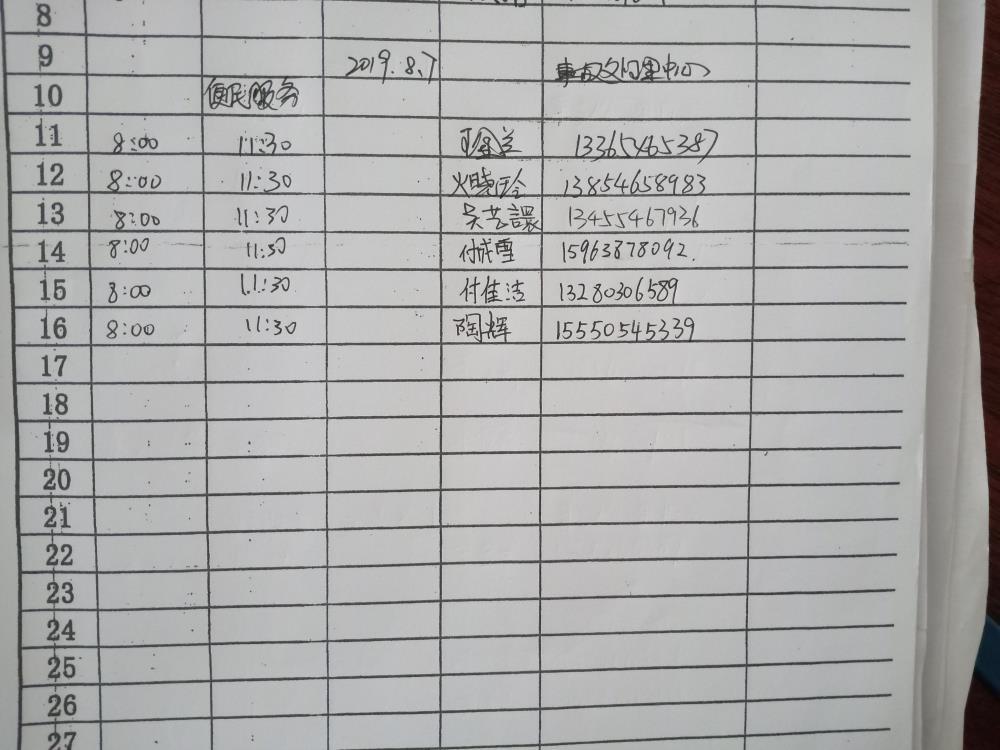 8
9 2019.8.7 中心
10 便民服务
11 8:00 11:30 13365465387
12 8:00 11:30 13854658983
13 8:00 11:30 吴芸譞 13455467936
14 8:00 11:30 付成雪 15963878092.
15 8:00 11:30 付佳洁 13280306589
16 8:00 11:30 陶辉 15550545339
17
18
19
20
21
22
23
24
25
26
27